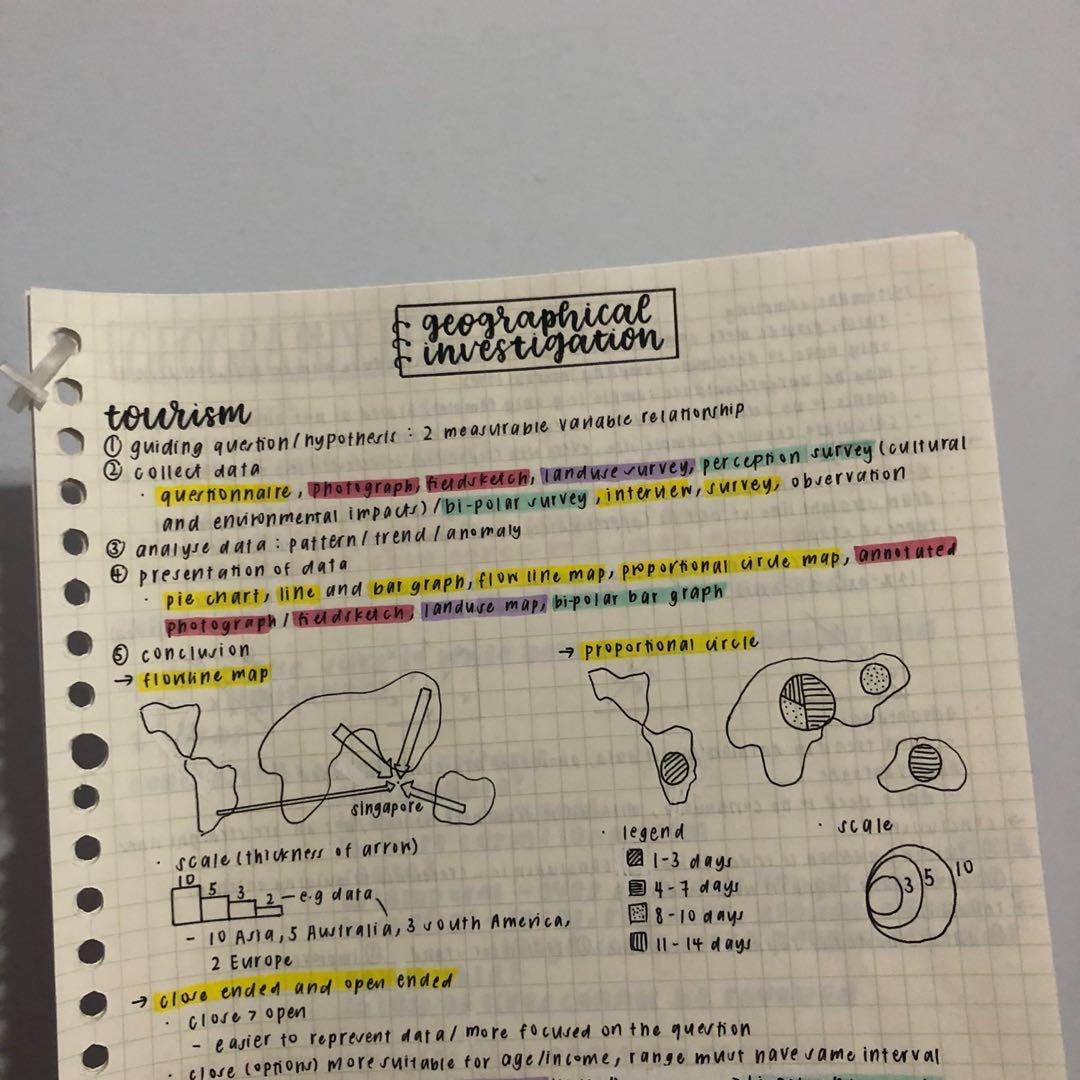 geographical
investigation
tourism
① guiding question/hypothesis : 2 measurable variable relationship
② collect data
· questionnaire, photograph, fieldsketch, landuse survey, perception survey (cultural
and environmental impacts)/bi-polar survey, interview, survey, observation
③ analyse data : pattern/trend/anomaly
④ presentation of data
· pie chart, line and bar graph, flow line map, proportional circle map, annotated
photograph/fieldsketch, landuse map, bi-polar bar graph
⑤ conclusion
→ flowline map
→ proportional circle
singapore
· scale (thickness of arrow)
10 5 3 2 — e.g data
- 10 Asia, 5 Australia, 3 south America,
2 Europe
· legend
1-3 days
4-7 days
8-10 days
11-14 days
· scale
3 5 10
→ close ended and open ended
· close > open
- easier to represent data/ more focused on the question
· close (options) more suitable for age/income, range must have same interval